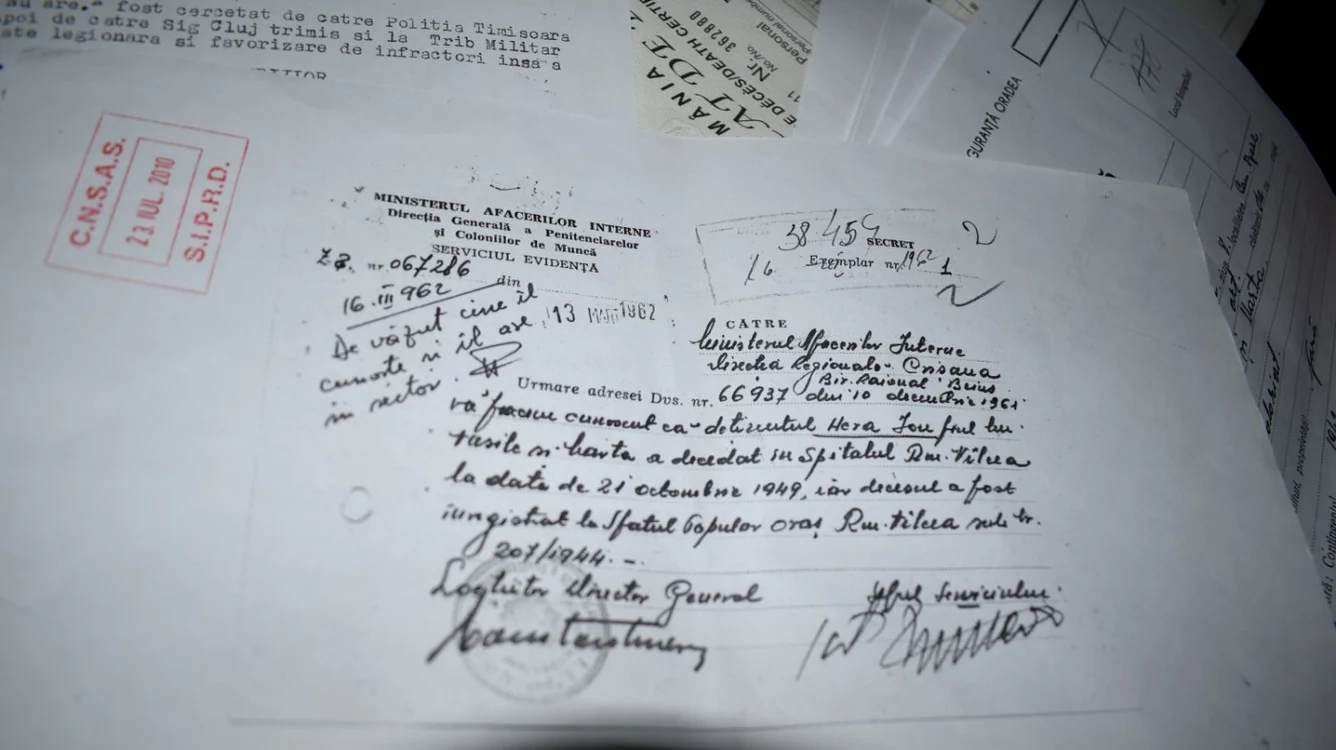 au are." fost cercetat de catre Politia Timisoara
apoi de catre Sig Cluj trimis si la Trib Militar
ate legionara si favorizare de infractori insa a
C.N.S.A.S.
23. IUL. 2010
S.I.P.R.D.
MÂNIA
DE DECES/DEATH CERTIF
Nr. 362880
No./No.
Personal
11
GURANȚĂ ORADEA
MINISTERUL AFACERILOR INTERNE
Direcția Generală a Penitenciarelor
și Coloniilor de Muncă
SERVICIUL EVIDENȚA
nr. 067286
din
16. III 962
13 MAR 1962
De văzut cine îl
cunoște si îl are
in sector.
38454
SECRET
Exemplar nr. 1
1962
2
CATRE
Ministerul Afacerilor Interne
Directia Regionala Crisana
Bir. Raional Beius
Urmare adresei Dvs. nr. 66937 din 10 decembrie 1961
vă facem cunoscut ca detinutul Hera Ion fiul lui
Vasile si Marta a decedat in Spitalul Rm. Vilcea
la data de 21 octombrie 1949, iar decesul a fost
inregistrat la Sfatul Popular oraș Rm. Vilcea sub nr.
207/1944. -
Loctiitor Director General
Șeful Serviciului